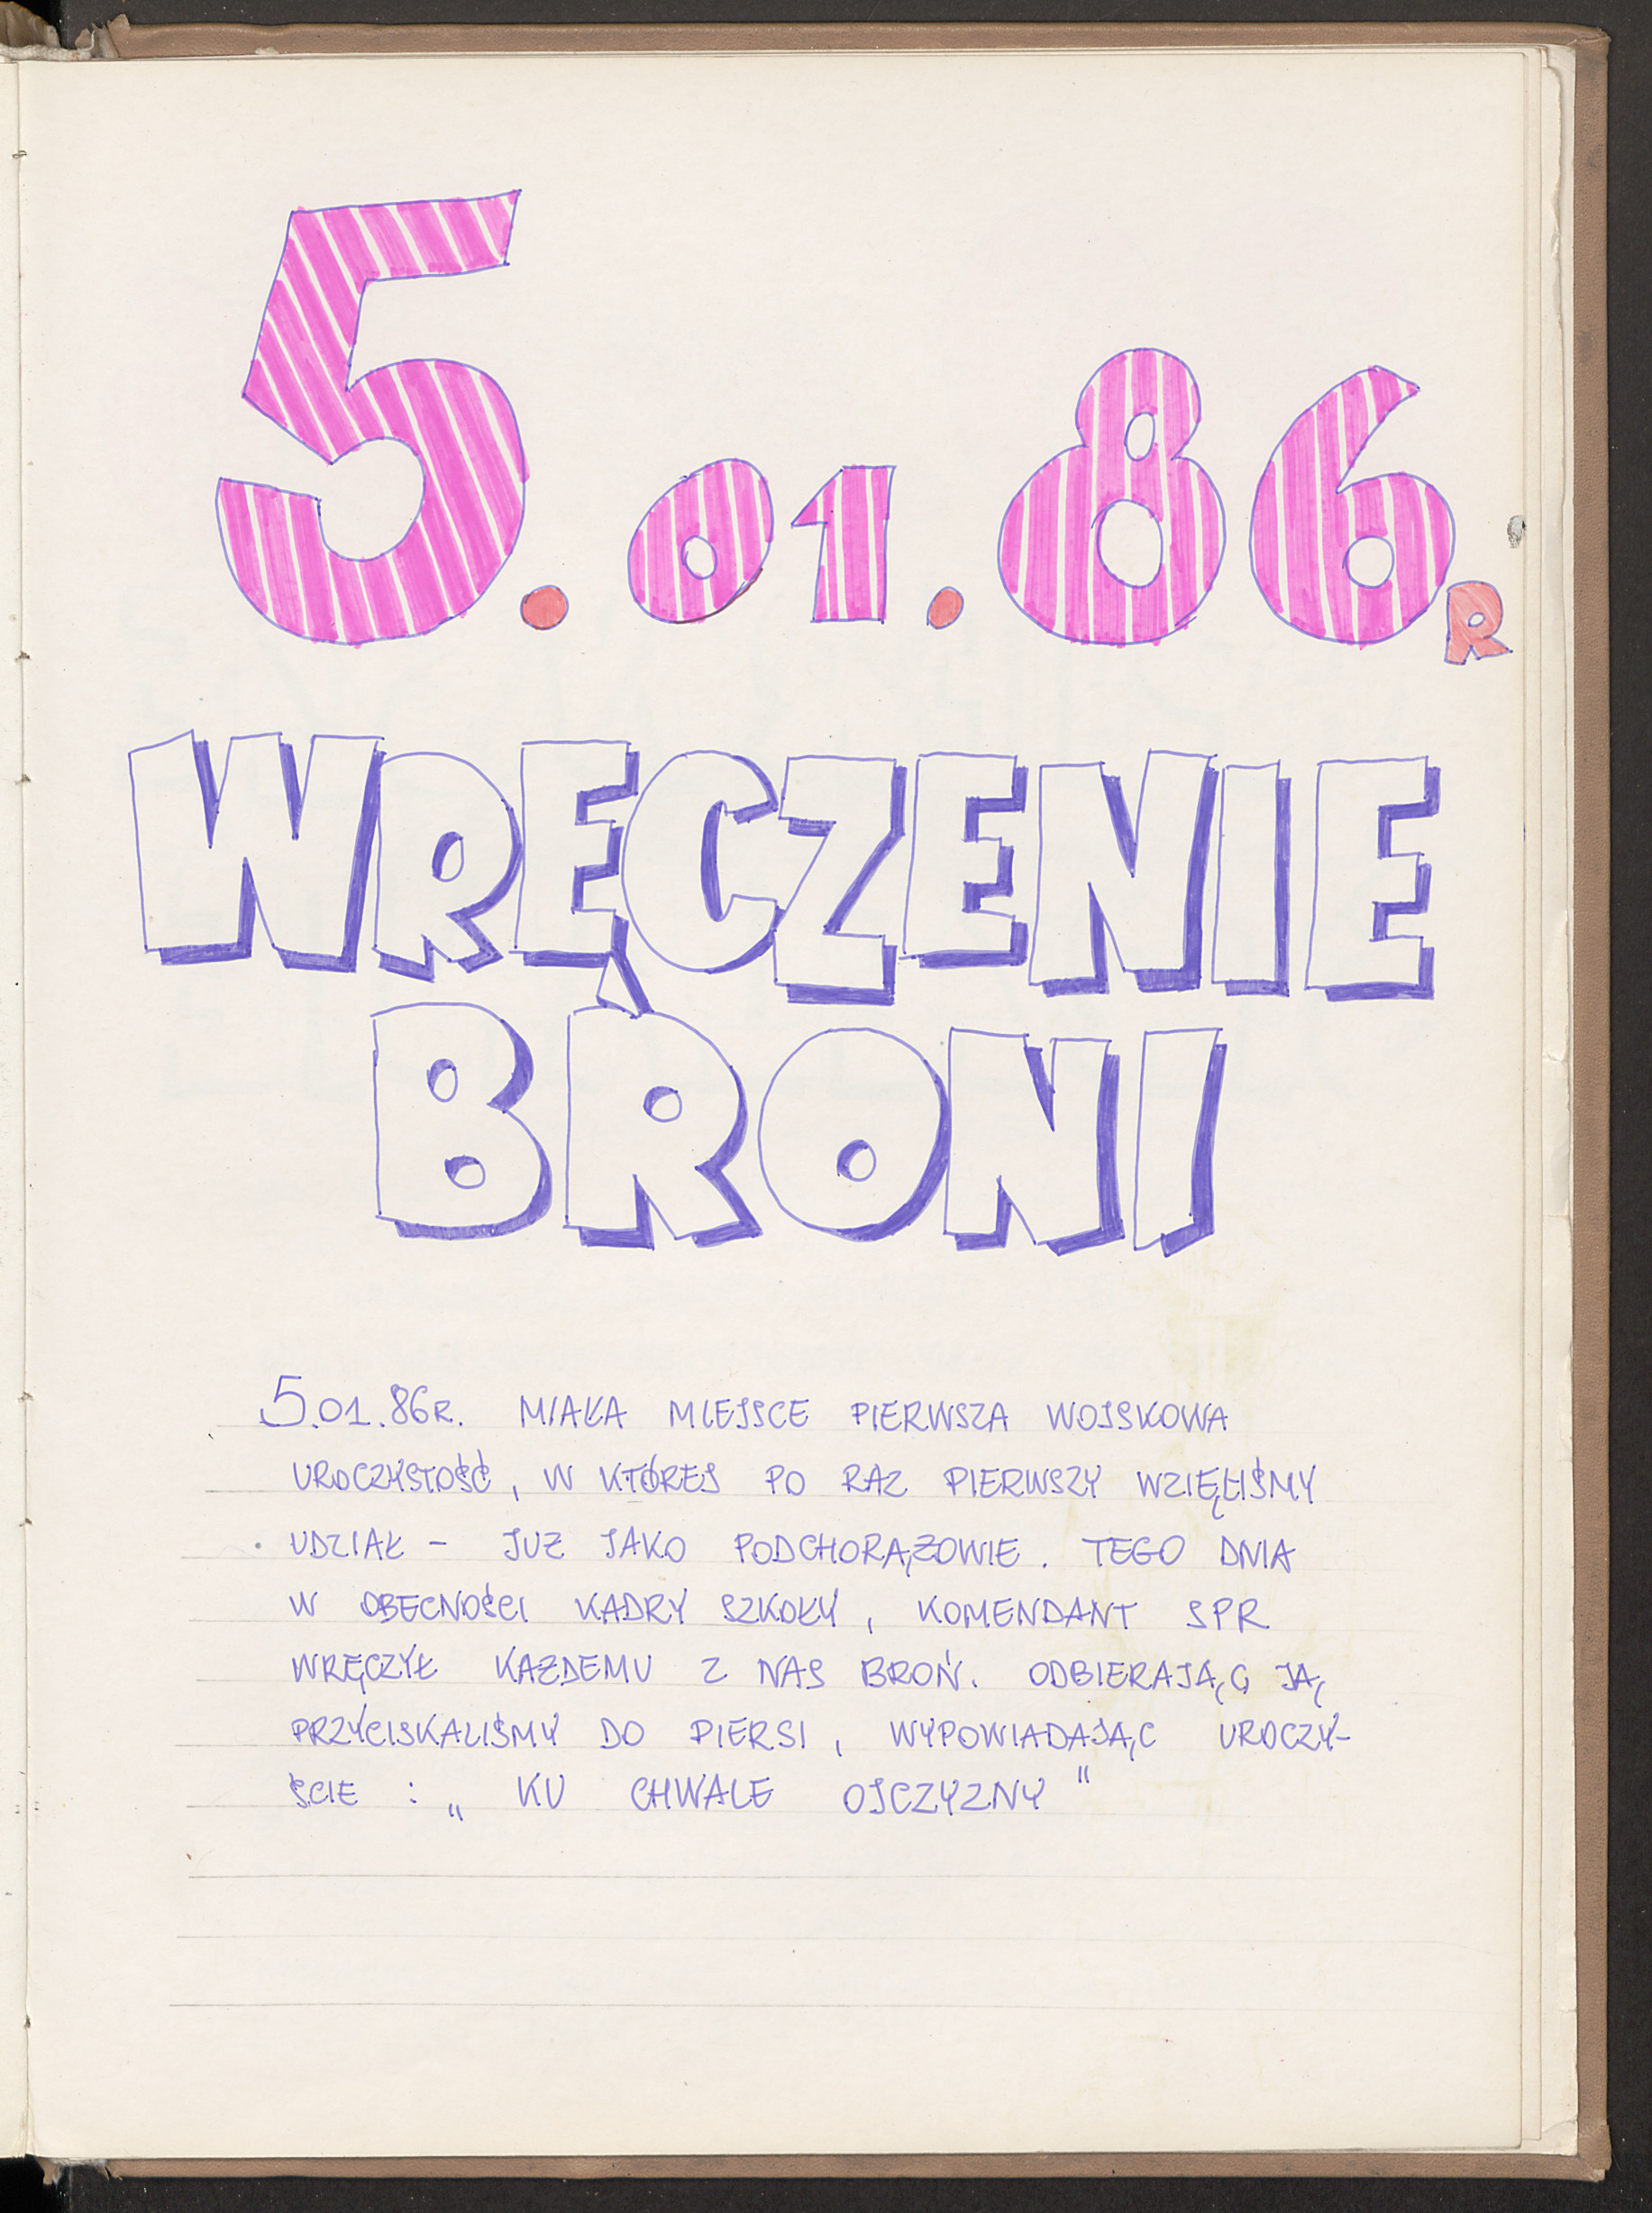 5.01.86R
WRĘCZENIE
BRONI
5.01.86R. MIAŁA MIEJSCE PIERWSZA WOJSKOWA
UROCZYSTOŚĆ, W KTÓREJ PO RAZ PIERWSZY WZIĘLIŚMY
UDZIAŁ - JUŻ JAKO PODCHORĄŻOWIE. TEGO DNIA
W OBECNOŚCI KADRY SZKOŁY, KOMENDANT SPR
WRĘCZYŁ KAŻDEMU Z NAS BROŃ. ODBIERAJĄC JĄ,
PRZYCISKALIŚMY DO PIERSI, WYPOWIADAJĄC UROCZY-
ŚCIE : „ KU CHWALE OJCZYZNY "